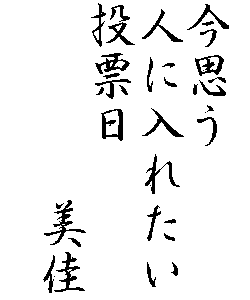 今思う
人に入れたい
投票日
美佳